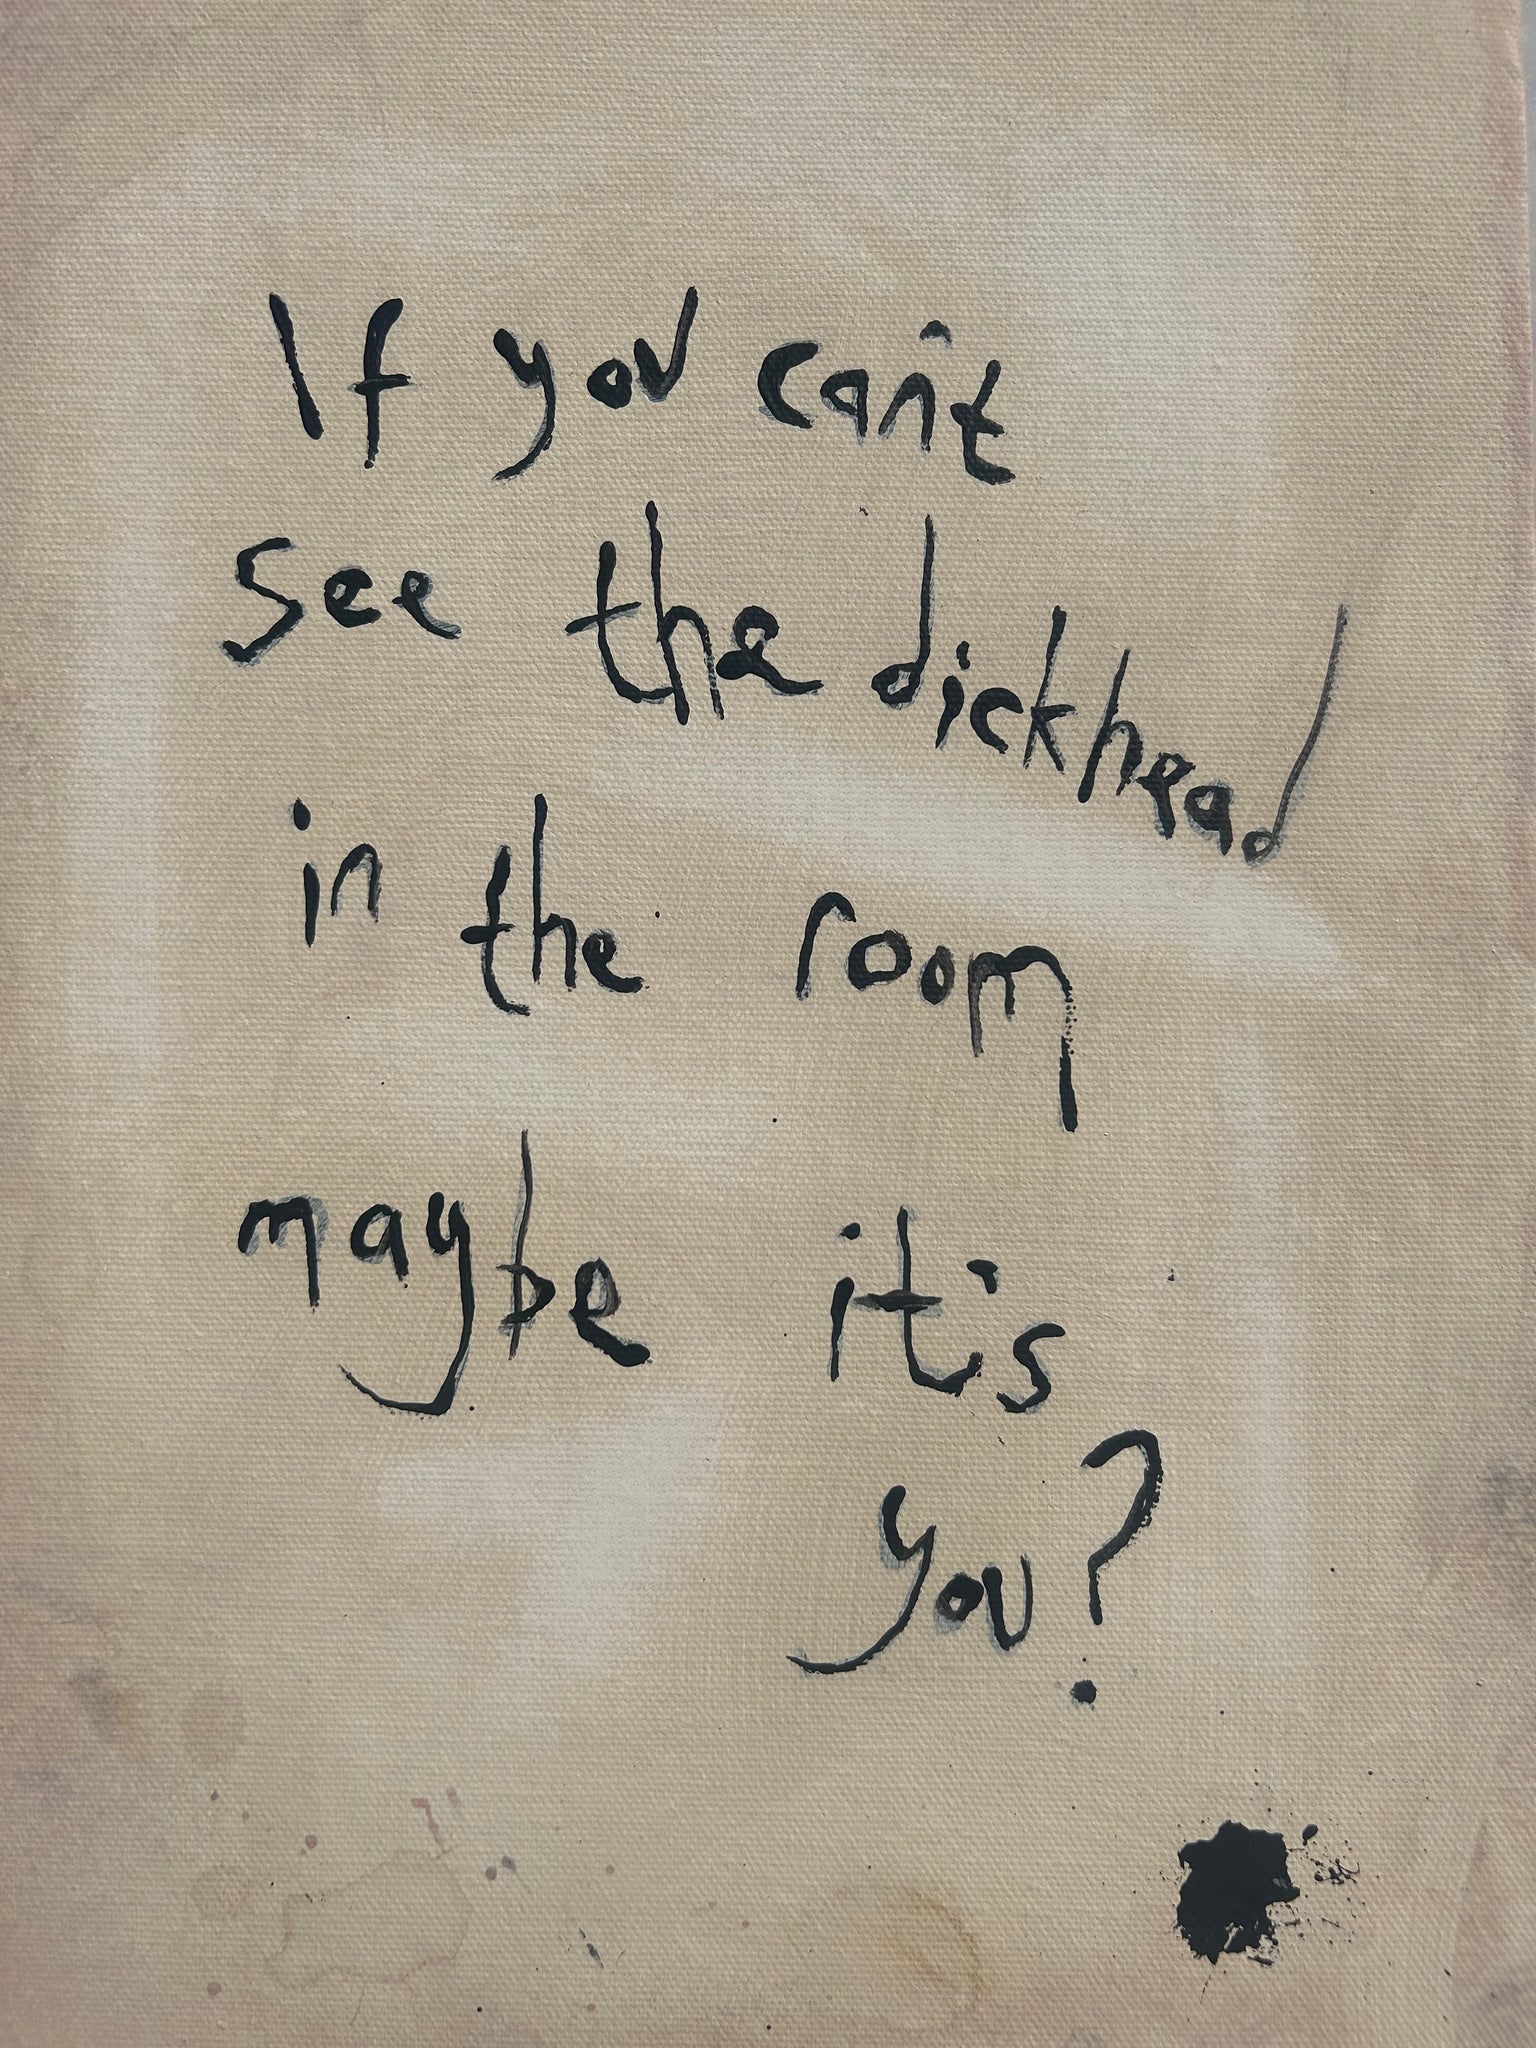 If you can't
see the dickhead
in the room
maybe it's
you?